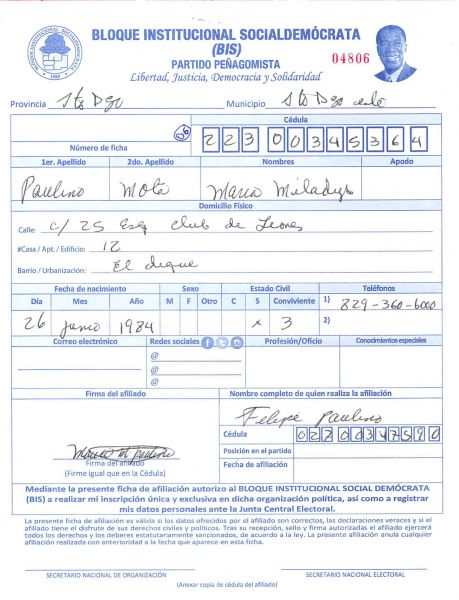 BLOQUE INSTITUCIONAL SOCIALDEMÓCRATA
(BIS)
PARTIDO PEÑAGOMISTA
Libertad, Justicia, Democracia y Solidaridad
04806
BLOQUE INSTITUCIONAL SOCIALDEMOCRATA
Provincia Sto Dgo Municipio Sto Dgo este
Cédula
Número de ficha 06 22300345364
1er. Apellido 2do. Apellido Nombres Apodo
Paulino Mota Maria Miladys
Domicilio Físico
Calle: c/ 25 Esq Club de Leones
#Casa / Apt. / Edificio: 12
Barrio / Urbanización: El dique
Fecha de nacimiento Sexo Estado Civil Teléfonos
Día Mes Año M F Otro C S Conviviente 1) 829-360-6000
26 Junio 1984 x 3 2)
Correo electrónico Redes sociales Profesión/Oficio Conocimientos especiales
@
@
@
Firma del afiliado Nombre completo de quien realiza la afiliación
Felipe Paulino
Cédula 02700347590
Posición en el partido
Fecha de afiliación
Maria M Paulino
Firma del afiliado
(Firme igual que en la Cédula)
Mediante la presente ficha de afiliación autorizo al BLOQUE INSTITUCIONAL SOCIAL DEMÓCRATA
(BIS) a realizar mi inscripción única y exclusiva en dicha organización política, así como a registrar
mis datos personales ante la Junta Central Electoral.
La presente ficha de afiliación es válida si los datos ofrecidos por el afiliado son correctos, las declaraciones veraces y si el
afiliado tiene el disfrute de sus derechos civiles y políticos. Tras su recepción, sello y firma autorizadas el afiliado ejercerá
todos los derechos y los deberes estatutariamente sancionados, de acuerdo a la ley. La presente afiliación anula cualquier
afiliación realizada con anterioridad a la fecha que aparece en esta ficha.
SECRETARIO NACIONAL DE ORGANIZACIÓN SECRETARIO NACIONAL ELECTORAL
(Anexar copia de cédula del afiliado)